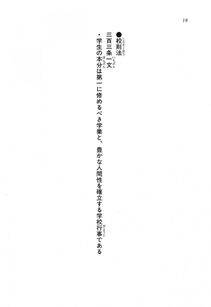 18
●校則法
三百三条一文
・学生の本分は第一に修めるべき学業と、豊かな人間性を確立する学校行事である